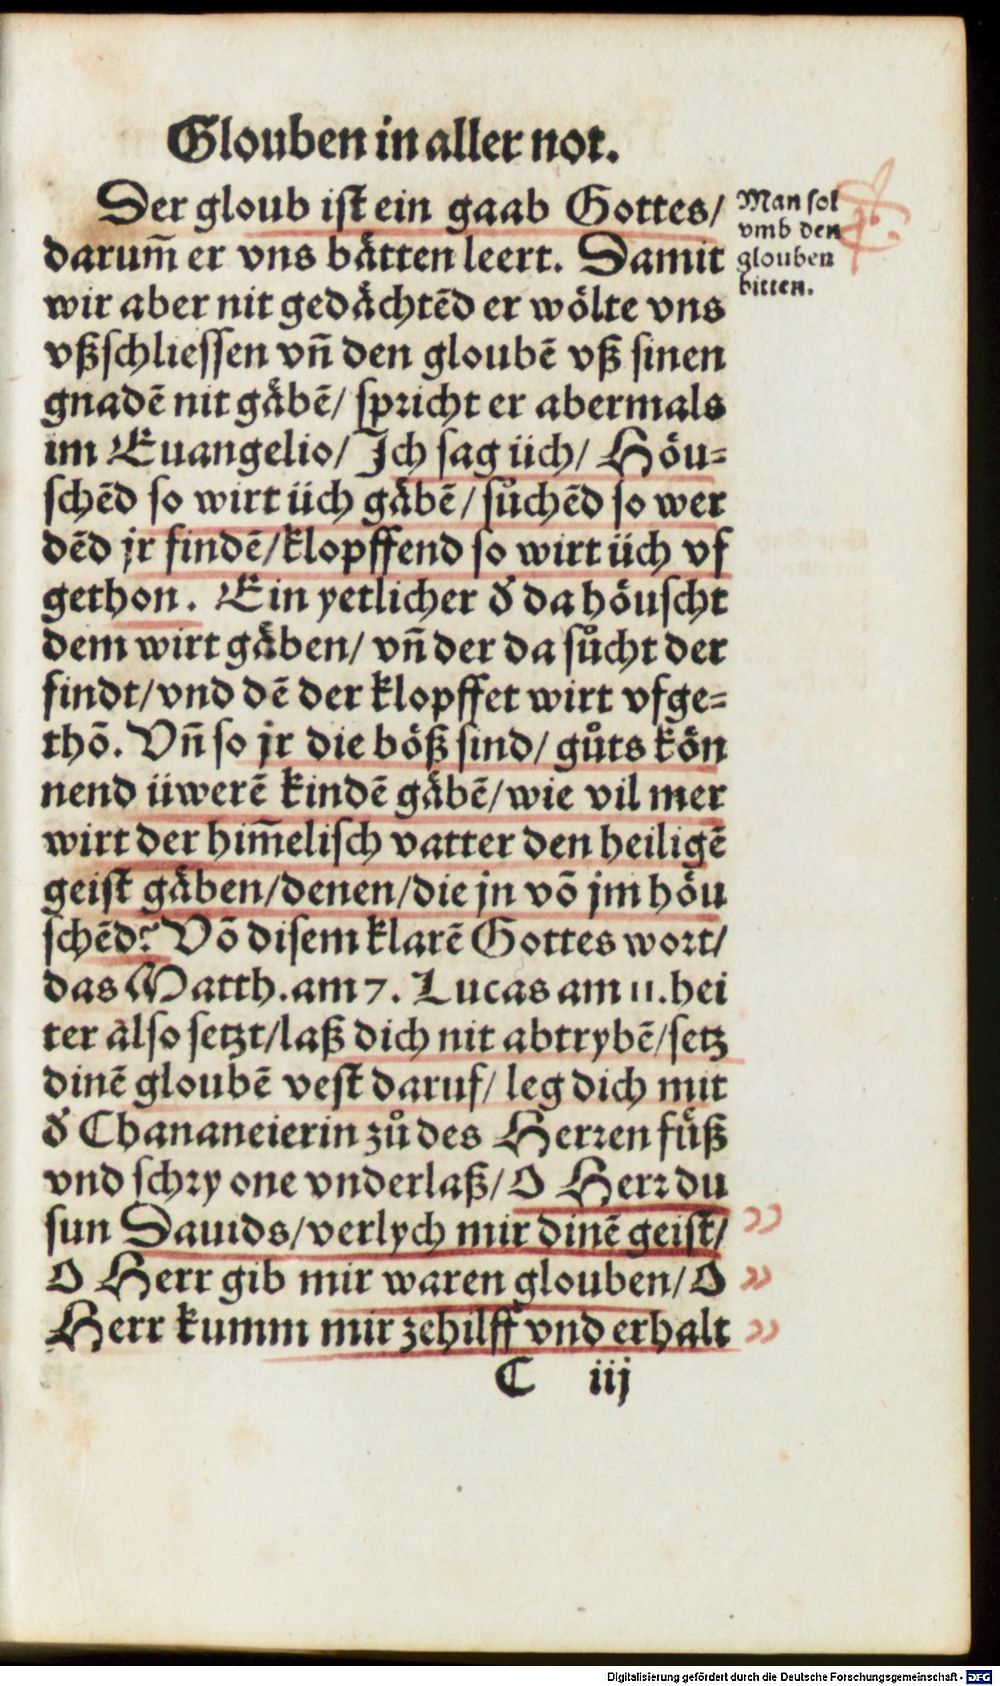 Glouben in aller not.
Der gloub ist ein gaab Gottes/
darum̃ er vns bätten leert. Damit
wir aber nit gedächtēd er wölte vns
vßschliessen vñ den gloubē vß sinen
gnadē nit gäbē/ spricht er abermals
im Euangelio/ Jch sag üch/ Höu-
schēd so wirt üch gäbē/ sůchēd so wer
dēd jr findē/klopffend so wirt üch vf
gethon. Ein yetlicher d̕ da höuscht
dem wirt gäben/ vñ der da sůcht der
findt/vnd dē der klopffet wirt vfge-
thō. Vñ so jr die böß sind/ gůts kön
nend üwerē kindē gäbē/wie vil mer
wirt der him̃elisch vatter den heiligē
geist gäben/denen/die jn vō jm höu
schēd? Vō disem klarē Gottes wort/
das Matth.am 7. Lucas am 11.hei
ter also setzt/laß dich nit abtrybē/setz
dinē gloubē vest daruf/ leg dich mit
d̕ Chananeierin zů des Herren füß
vnd schry one vnderlaß/O Herr du
sun Dauids/verlych mir dinē geist/
O Herr gib mir waren glouben/O
Herr kumm mir zehilff vnd erhalt
C iij
Man sol
vmb den
glouben
bitten.
Digitalisierung gefördert durch die Deutsche Forschungsgemeinschaft - DFG